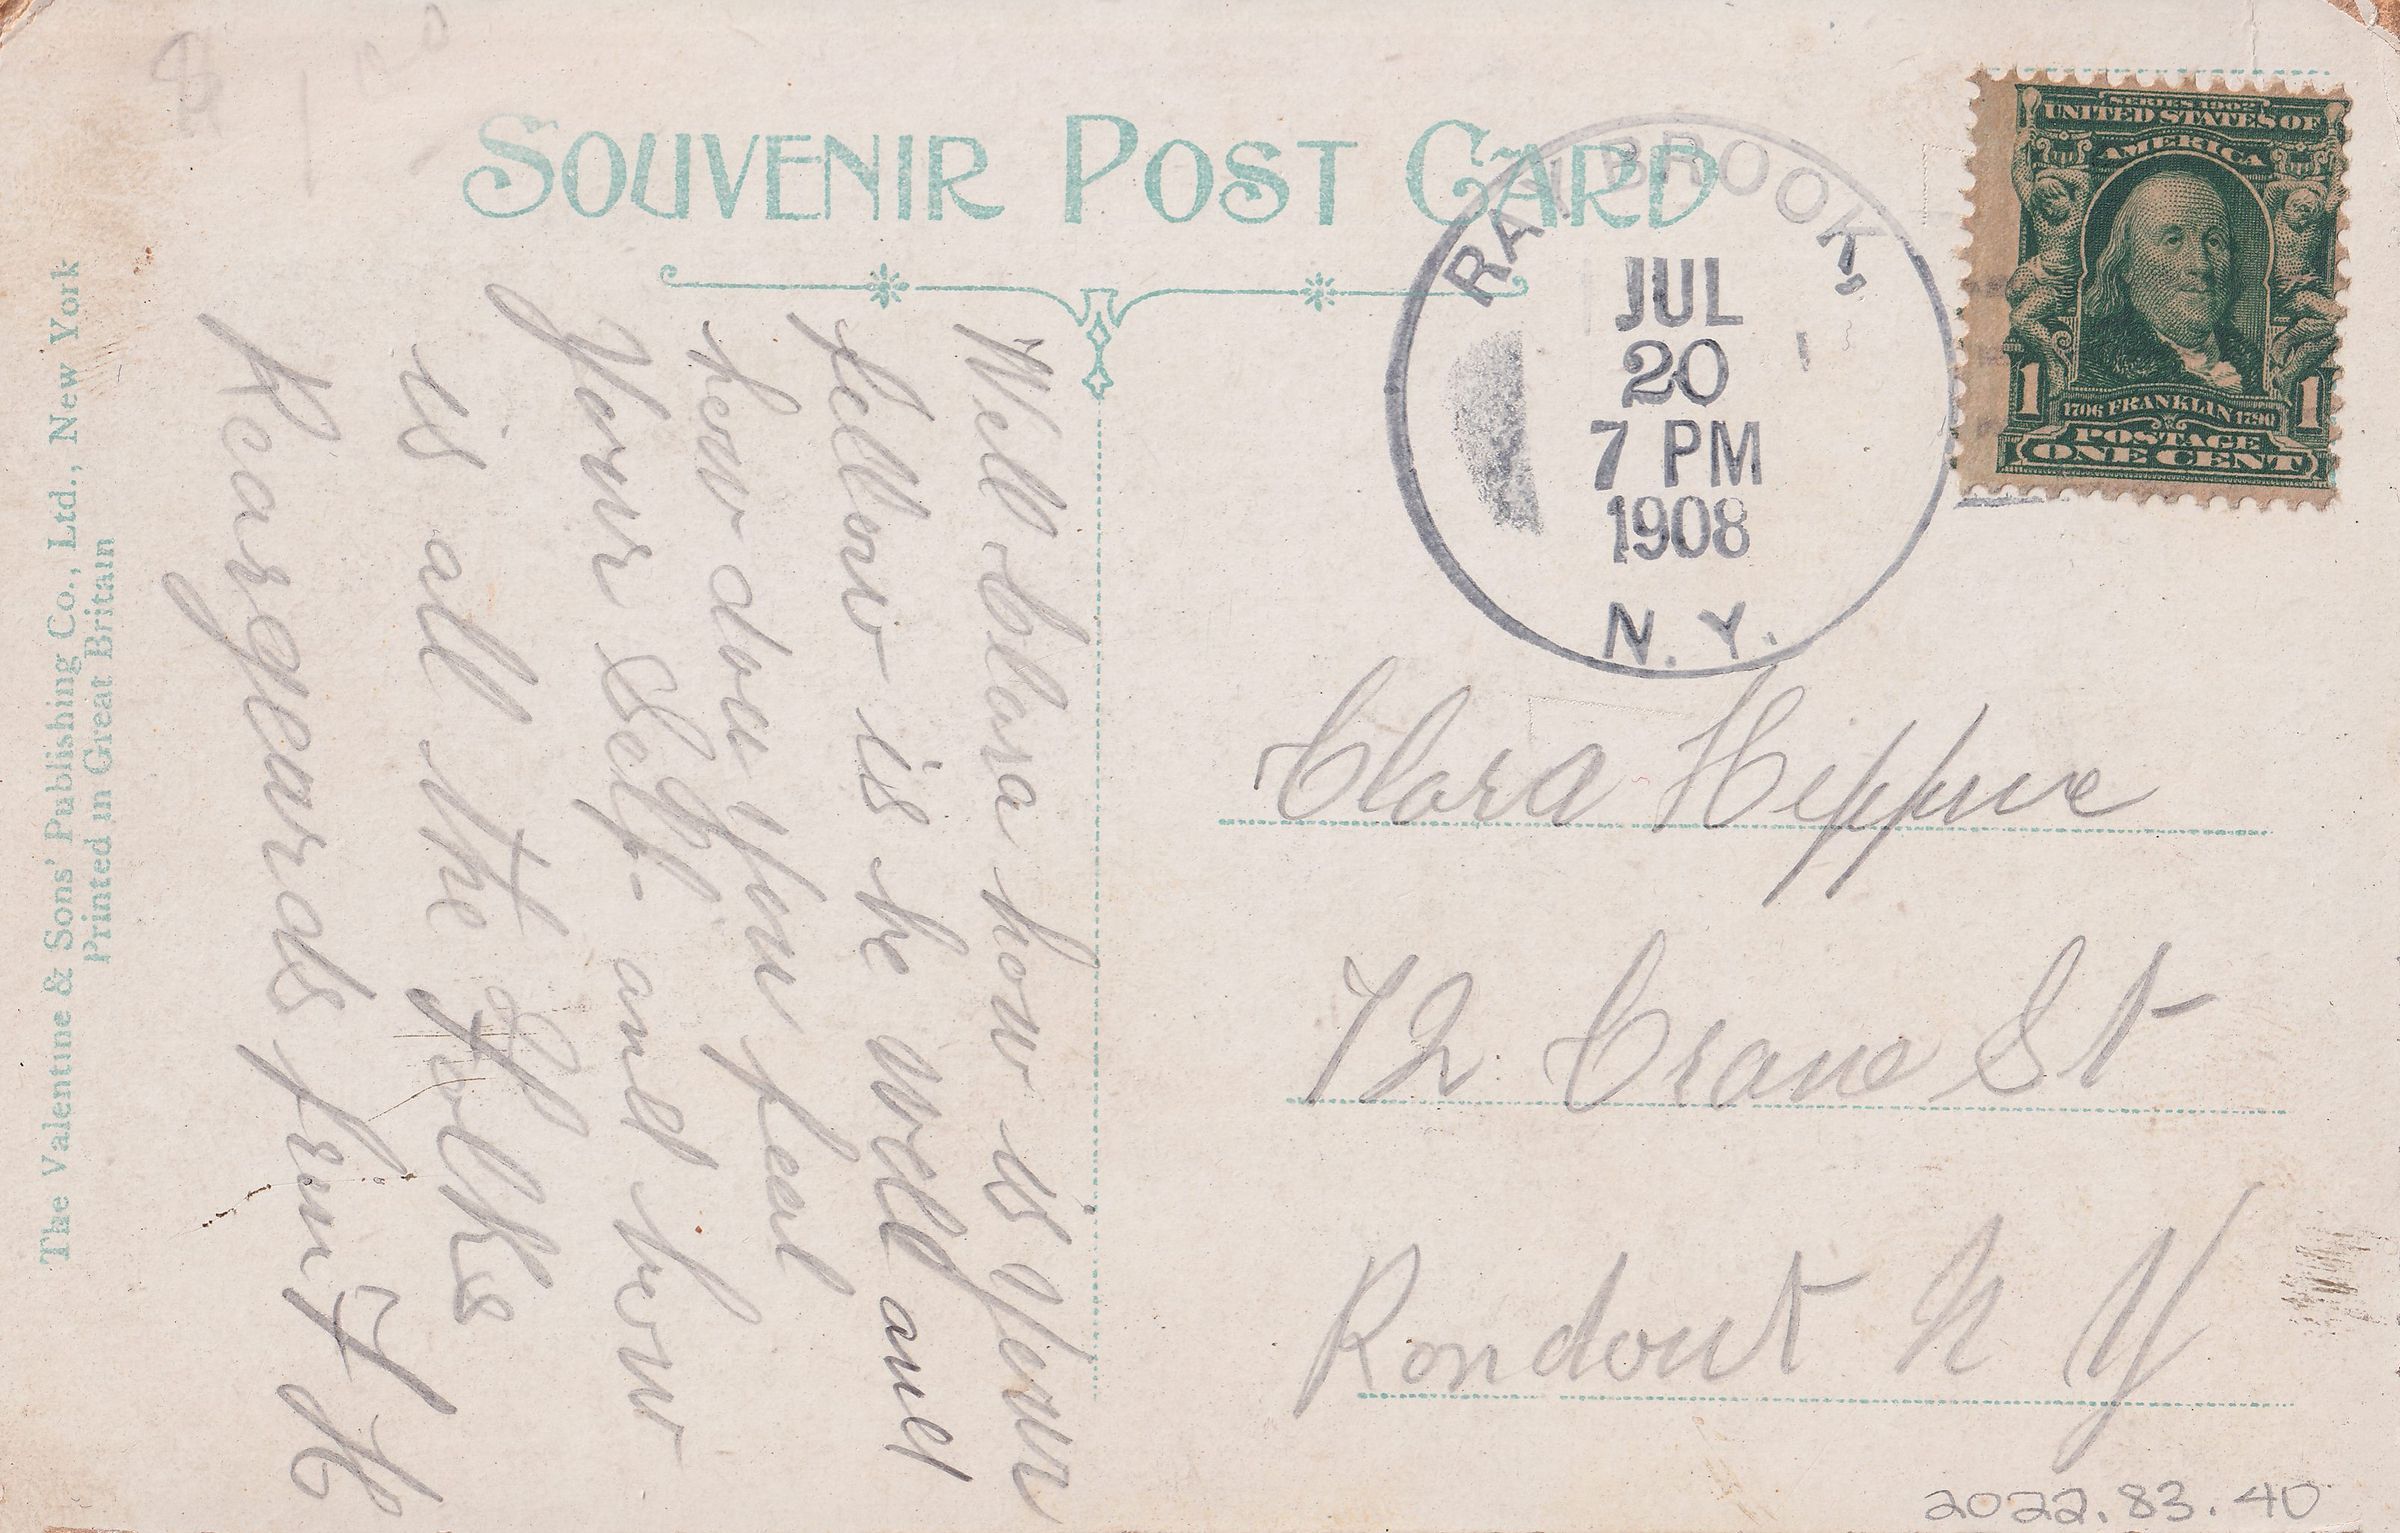 SOUVENIR POST CARD
RAY BROOK,
JUL
20
7 PM
1908
N. Y.
SERIES 1902
UNITED STATES OF
AMERICA
1 1
1706 FRANKLIN 1790
POSTAGE
ONE CENT
Well Clara how is your
fellow is he well and
how doce you feal
your Self- and how
is all the folks
Reargeards frim F H
Clara
72 Crane St
Rondout N Y
The Valentine & Sons' Publishing Co., Ltd., New York
Printed in Great Britain
2022.83.40